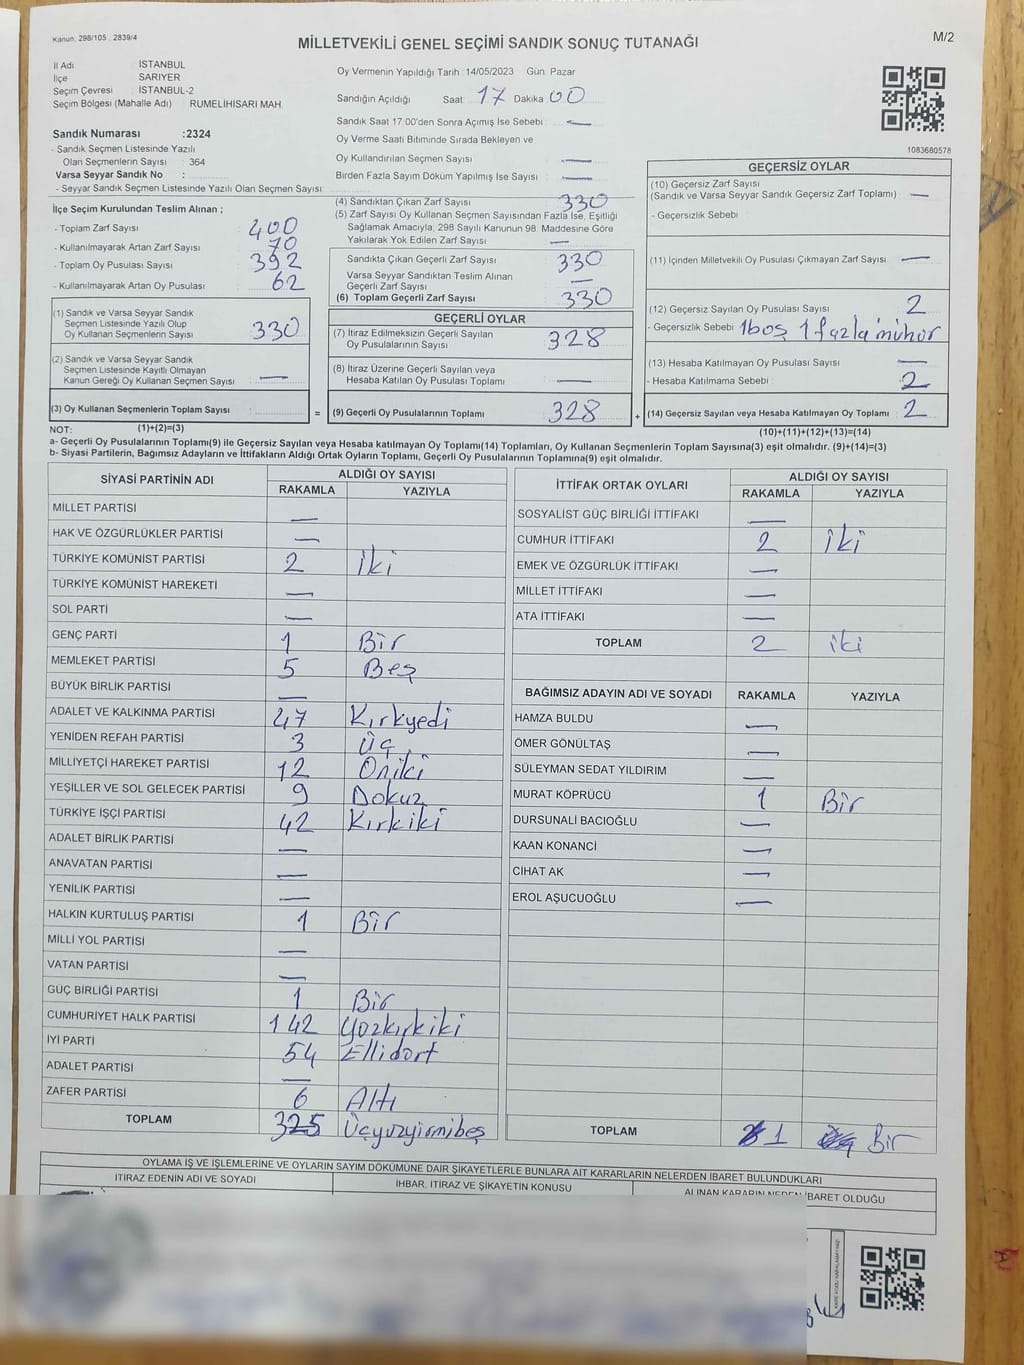 Kanun, 298/105 , 2839/4
MİLLETVEKİLİ GENEL SEÇİMİ SANDIK SONUÇ TUTANAĞI
M/2
İl Adı İSTANBUL
İlçe SARIYER
Seçim Çevresi : İSTANBUL-2
Seçim Bölgesi (Mahalle Adı) : RUMELİHİSARI MAH.
Sandık Numarası :2324
- Sandık Seçmen Listesinde Yazılı
Olan Seçmenlerin Sayısı : 364
Varsa Seyyar Sandık No :
- Seyyar Sandık Seçmen Listesinde Yazılı Olan Seçmen Sayısı:
Oy Vermenin Yapıldığı Tarih :14/05/2023 Gün: Pazar
Sandığın Açıldığı Saat: 17 Dakika: 00
Sandık Saat 17:00'den Sonra Açımış İse Sebebi : —
Oy Verme Saati Bitiminde Sırada Bekleyen ve
Oy Kullandırılan Seçmen Sayısı —
Birden Fazla Sayım Döküm Yapılmış İse Sayısı : —
1083680578
İlçe Seçim Kurulundan Teslim Alınan ;
- Toplam Zarf Sayısı : 400
- Kullanılmayarak Artan Zarf Sayısı : 70
- Toplam Oy Pusulası Sayısı : 392
- Kullanılmayarak Artan Oy Pusulası : 62
(1) Sandık ve Varsa Seyyar Sandık
Seçmen Listesinde Yazılı Olup
Oy Kullanan Seçmenlerin Sayısı : 330
(2) Sandık ve Varsa Seyyar Sandık
Seçmen Listesinde Kayıtlı Olmayan
Kanun Gereği Oy Kullanan Seçmen Sayısı : —
(3) Oy Kullanan Seçmenlerin Toplam Sayısı :
(1)+(2)=(3)
(4) Sandıktan Çıkan Zarf Sayısı : 330
(5) Zarf Sayısı Oy Kullanan Seçmen Sayısından Fazla İse, Eşitliği
Sağlamak Amacıyla, 298 Sayılı Kanunun 98. Maddesine Göre
Yakılarak Yok Edilen Zarf Sayısı : —
Sandıkta Çıkan Geçerli Zarf Sayısı : 330
Varsa Seyyar Sandıktan Teslim Alınan
Geçerli Zarf Sayısı : —
(6) Toplam Geçerli Zarf Sayısı : 330
GEÇERLİ OYLAR
(7) İtiraz Edilmeksizin Geçerli Sayılan
Oy Pusulalarının Sayısı : 328
(8) İtiraz Üzerine Geçerli Sayılan veya
Hesaba Katılan Oy Pusulası Toplamı : —
= (9) Geçerli Oy Pusulalarının Toplamı : 328
GEÇERSİZ OYLAR
(10) Geçersiz Zarf Sayısı
(Sandık ve Varsa Seyyar Sandık Geçersiz Zarf Toplamı) : —
- Geçersizlik Sebebi :
(11) İçinden Milletvekili Oy Pusulası Çıkmayan Zarf Sayısı : —
(12) Geçersiz Sayılan Oy Pusulası Sayısı : 2
- Geçersizlik Sebebi : 1boş 1 fazla mühür
(13) Hesaba Katılmayan Oy Pusulası Sayısı : —
- Hesaba Katılmama Sebebi : 2
+ (14) Geçersiz Sayılan veya Hesaba Katılmayan Oy Toplamı : 2
(10)+(11)+(12)+(13)=(14)
NOT:
a- Geçerli Oy Pusulalarının Toplamı(9) ile Geçersiz Sayılan veya Hesaba katılmayan Oy Toplamı(14) Toplamları, Oy Kullanan Seçmenlerin Toplam Sayısına(3) eşit olmalıdır. (9)+(14)=(3)
b- Siyasi Partilerin, Bağımsız Adayların ve İttifakların Aldığı Ortak Oyların Toplamı, Geçerli Oy Pusulalarının Toplamına(9) eşit olmalıdır.
SİYASİ PARTİNİN ADI ALDIĞI OY SAYISI
RAKAMLA YAZIYLA
MİLLET PARTİSİ —
HAK VE ÖZGÜRLÜKLER PARTİSİ —
TÜRKİYE KOMÜNİST PARTİSİ 2 iki
TÜRKİYE KOMÜNİST HAREKETİ —
SOL PARTİ —
GENÇ PARTİ 1 Bir
MEMLEKET PARTİSİ 5 Beş
BÜYÜK BİRLİK PARTİSİ —
ADALET VE KALKINMA PARTİSİ 47 Kırkyedi
YENİDEN REFAH PARTİSİ 3 Üç
MİLLİYETÇİ HAREKET PARTİSİ 12 Oniki
YEŞİLLER VE SOL GELECEK PARTİSİ 9 Dokuz
TÜRKİYE İŞÇİ PARTİSİ 42 Kırkiki
ADALET BİRLİK PARTİSİ —
ANAVATAN PARTİSİ —
YENİLİK PARTİSİ —
HALKIN KURTULUŞ PARTİSİ 1 Bir
MİLLİ YOL PARTİSİ —
VATAN PARTİSİ —
GÜÇ BİRLİĞİ PARTİSİ 1 Bir
CUMHURİYET HALK PARTİSİ 142 Yüzkırkiki
İYİ PARTİ 54 Ellidört
ADALET PARTİSİ —
ZAFER PARTİSİ 6 Altı
TOPLAM 325 Üçyüzyirmibeş
İTTİFAK ORTAK OYLARI ALDIĞI OY SAYISI
RAKAMLA YAZIYLA
SOSYALİST GÜÇ BİRLİĞİ İTTİFAKI —
CUMHUR İTTİFAKI 2 iki
EMEK VE ÖZGÜRLÜK İTTİFAKI —
MİLLET İTTİFAKI —
ATA İTTİFAKI —
TOPLAM 2 iki
BAĞIMSIZ ADAYIN ADI VE SOYADI RAKAMLA YAZIYLA
HAMZA BULDU —
ÖMER GÖNÜLTAŞ —
SÜLEYMAN SEDAT YILDIRIM —
MURAT KÖPRÜCÜ 1 Bir
DURSUNALİ BACIOĞLU —
KAAN KONANCİ —
CİHAT AK —
EROL AŞUCUOĞLU —
TOPLAM 1 Bir
OYLAMA İŞ VE İŞLEMLERİNE VE OYLARIN SAYIM DÖKÜMÜNE DAİR ŞİKAYETLERLE BUNLARA AİT KARARLARIN NELERDEN İBARET BULUNDUKLARI
İTİRAZ EDENİN ADI VE SOYADI İHBAR, İTİRAZ VE ŞİKAYETİN KONUSU ALINAN KARARIN NEDEN İBARET OLDUĞU